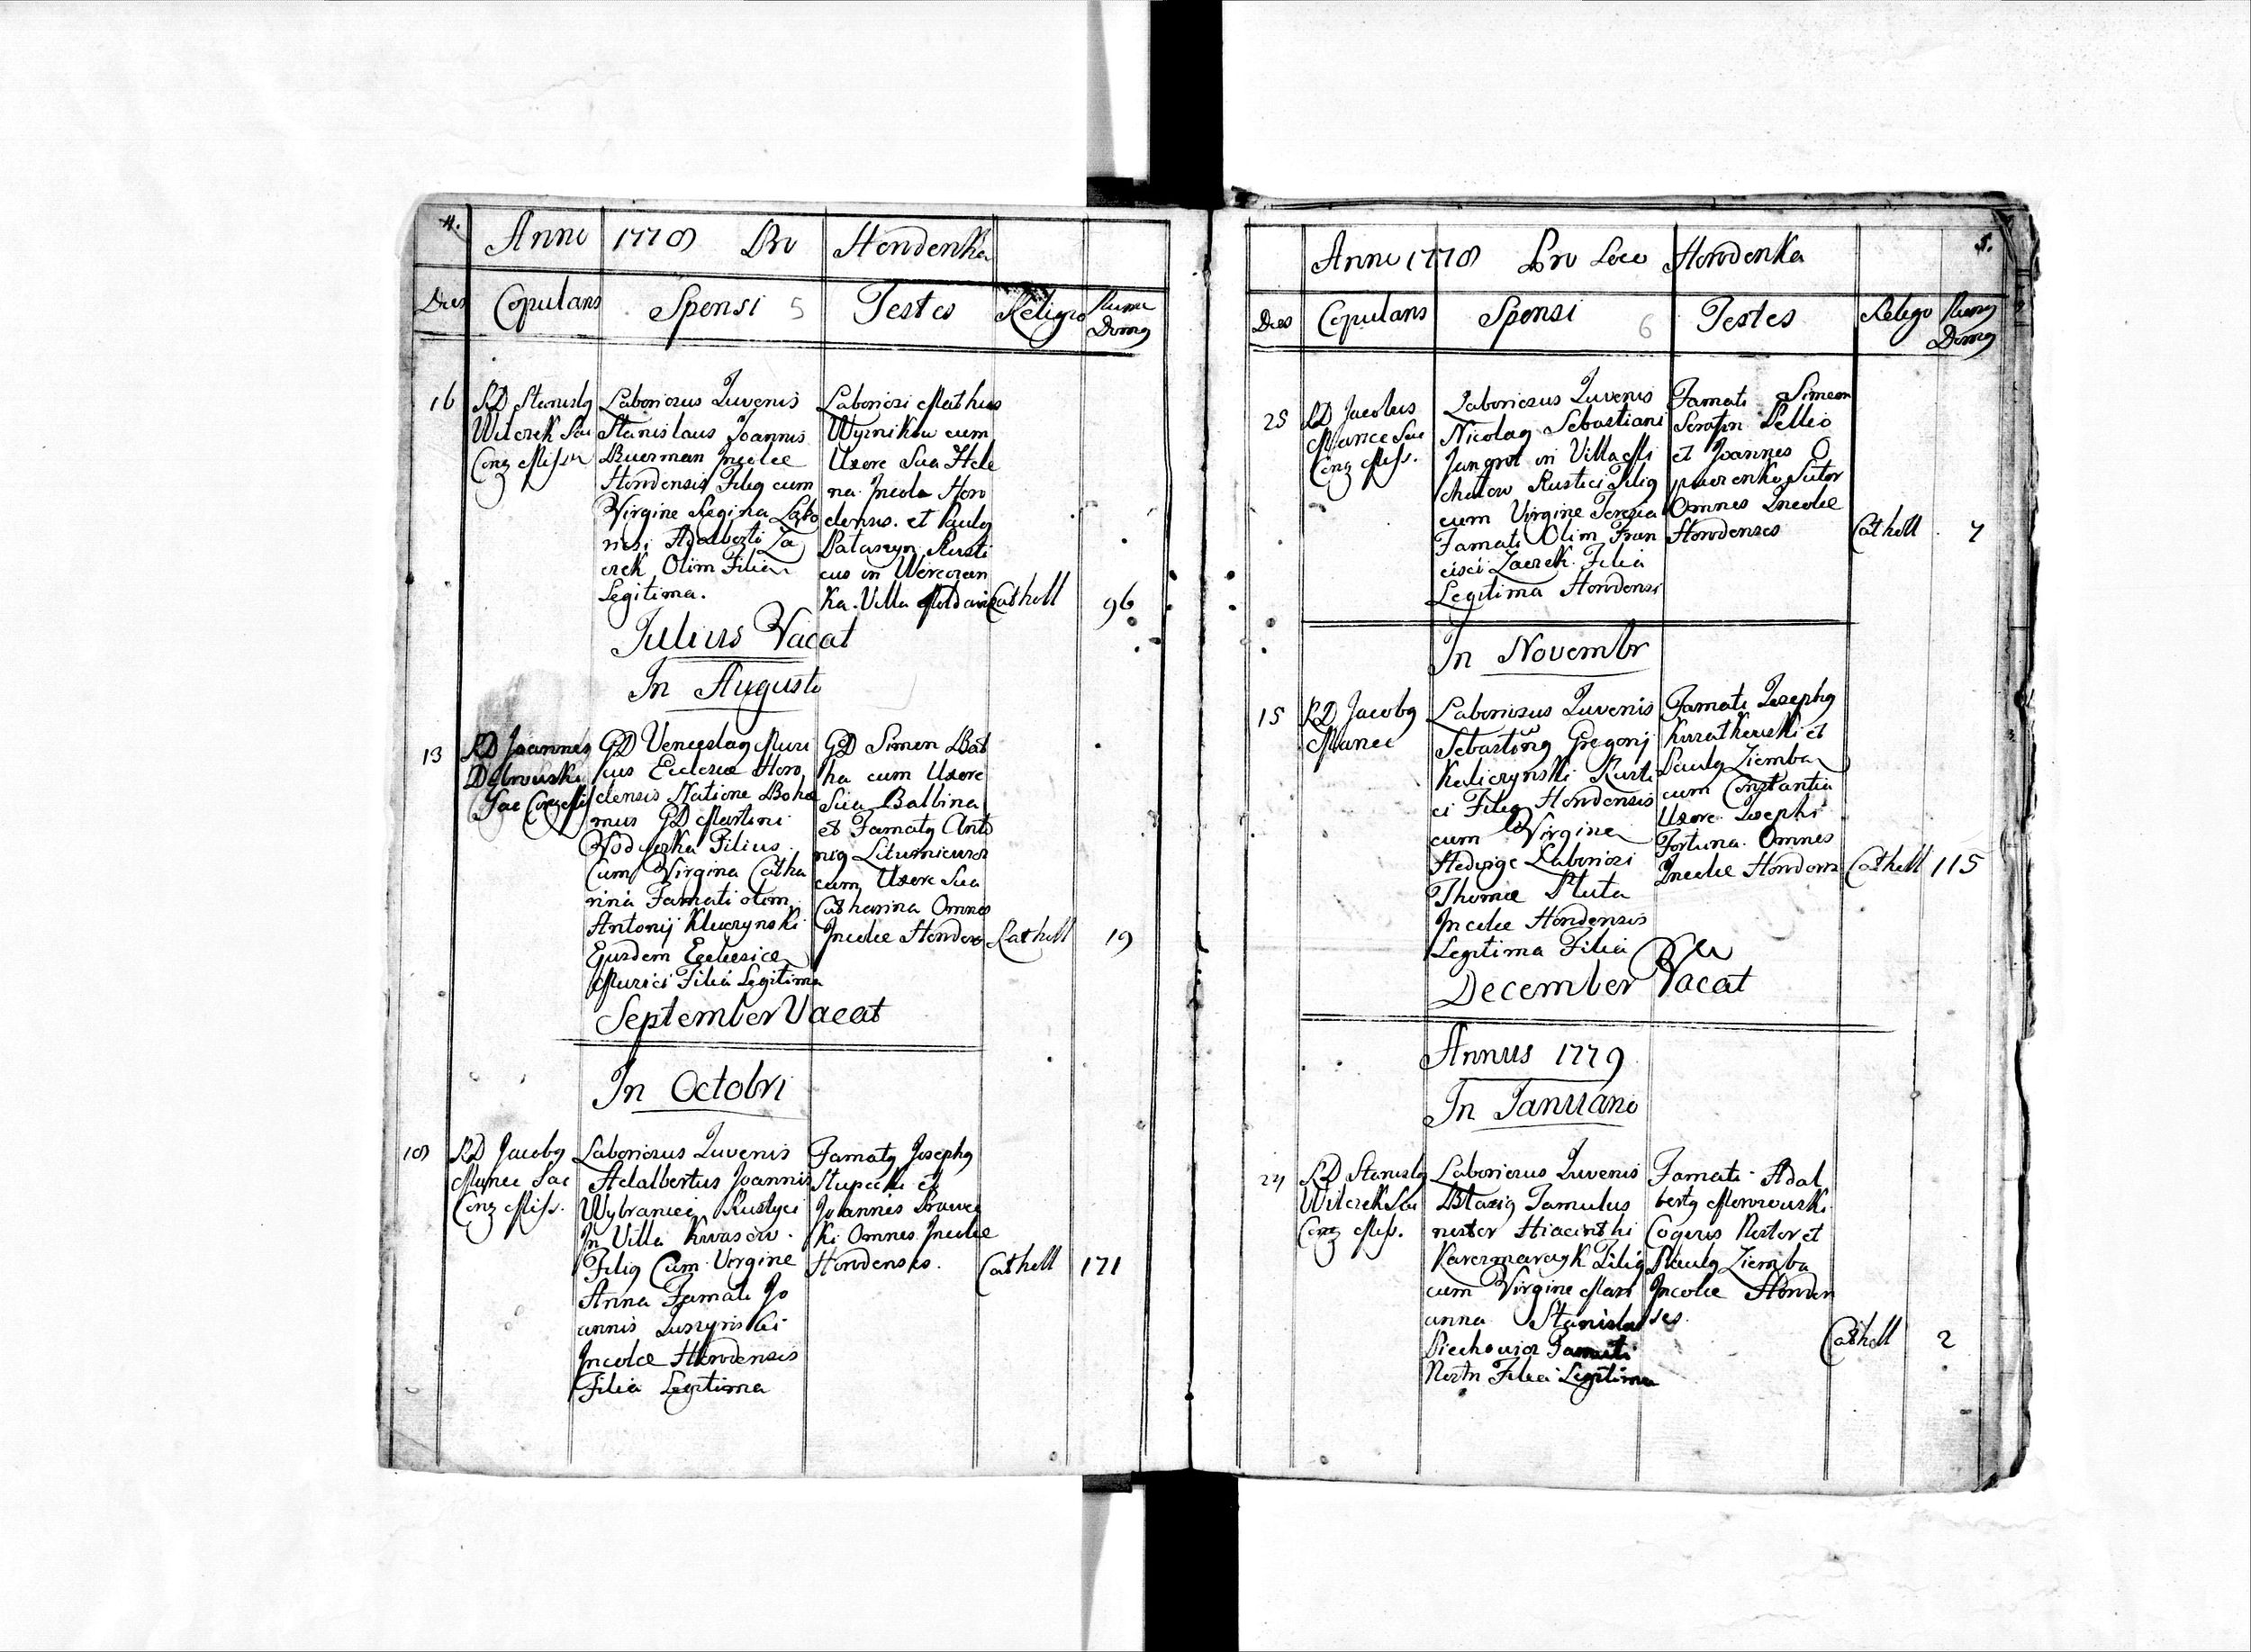 4.
Anni 1778 Pro Horodenka
Dies Copulans Sponsi 5 Testes Religio Num Domg
16
RD Stanislg
Wilczek Sac
Cong Missu
Laboriosus Juvenis
Stanislaus Joannis
Buerman Incolae
Horodensis Filig cum
Virgine Regina Labo
riosi Adalberti Za
czek Olim Filia
Legitima.
Laboriosi Mathias
Wyrnikow cum
Uxore Sua Hele
na. Incola Horo
densis. et Paulg
Rusti
cus in Werczan
ka. Villa Moldavi
Catholl
96
Julius Vacat
In Augusto
13
RD Joannes
Dąbrowski
Sac Cong Mis
GD Venceslag Musi
cus Ecclesiae Horo
densis Natione Bohe
mus GD Martini
Filius
Cum Virgina Catha
rina Famati olim
Antonij Kluczynski
Ejusdem Ecclesiae
Musici Filia Legitima
GD Simon Bat
ha cum Uxore
Sua Balbina
et Famatg Anto
nig
cum Uxore Sua
Catharina Omnes
Incolae Horodens
Catholl
19
September Vacat
In Octobri
18
RD Jacobg
Manec Sac
Cong Miss.
Laboriosus Juvenis
Adalbertus Joannis
Wybraniec Rustyci
In Villa Kwasow.
Filig Cum Virgine
Anna Famati Jo
annis Luszynski
Incolae Horodensis
Filia Legitima
Famatg Josephg
Stupecki et
Joannes Prawec
ki Omnes Incolae
Horodenses.
Catholl
171
5.
Anni 1778 Pro Loco Horodenka
Dies Copulans Sponsi 6 Testes Religo Numg Domg
25
RD Jacobus
Manec Sac
Cong Miss.
Laboriosus Juvenis
Nicolag Sebastiani
Jungrot in Villa Mi
chalow Rustici Filig
cum Virgine Teresia
Famati Olim Fran
cisci Zaczek. Filia
Legitima Horodensi
Famati Simeon
Serafin Pellio
et Joannes O
puerenko Sutor
Omnes Incolae
Horodenses
Catholl
7
In Novembr
15
RD Jacobg
Manec
Laboriosus Juvenis
Sebastiang Gregorij
Kaliczynski Rusti
ci Filig Horodensis
cum Virgine
Hedvige Laboriosi
Thomae Pluta
Incolae Horodensis
Legitima Filia
Famati Josephg
Kwiatkowski et
Paulg Ziemba
cum Constantia
Uxore Josephi
Fortuna. Omnes
Incolae Horodens
Catholl
115
December Vacat
Annus 1779
In Januario
24
RD Stanislg
Wilczek Sac
Cong Miss.
Laboriosus Juvenis
Blasig Famulus
nestor Hiacinthi
Karczmarczyk Filig
cum Virgine Mari
anna Stanislai
Piechowicz Famati
Filia Legitima
Famati Adal
bertg Morowski
et
Paulg Ziemba
Incolae Horoden
ses.
Catholl
2